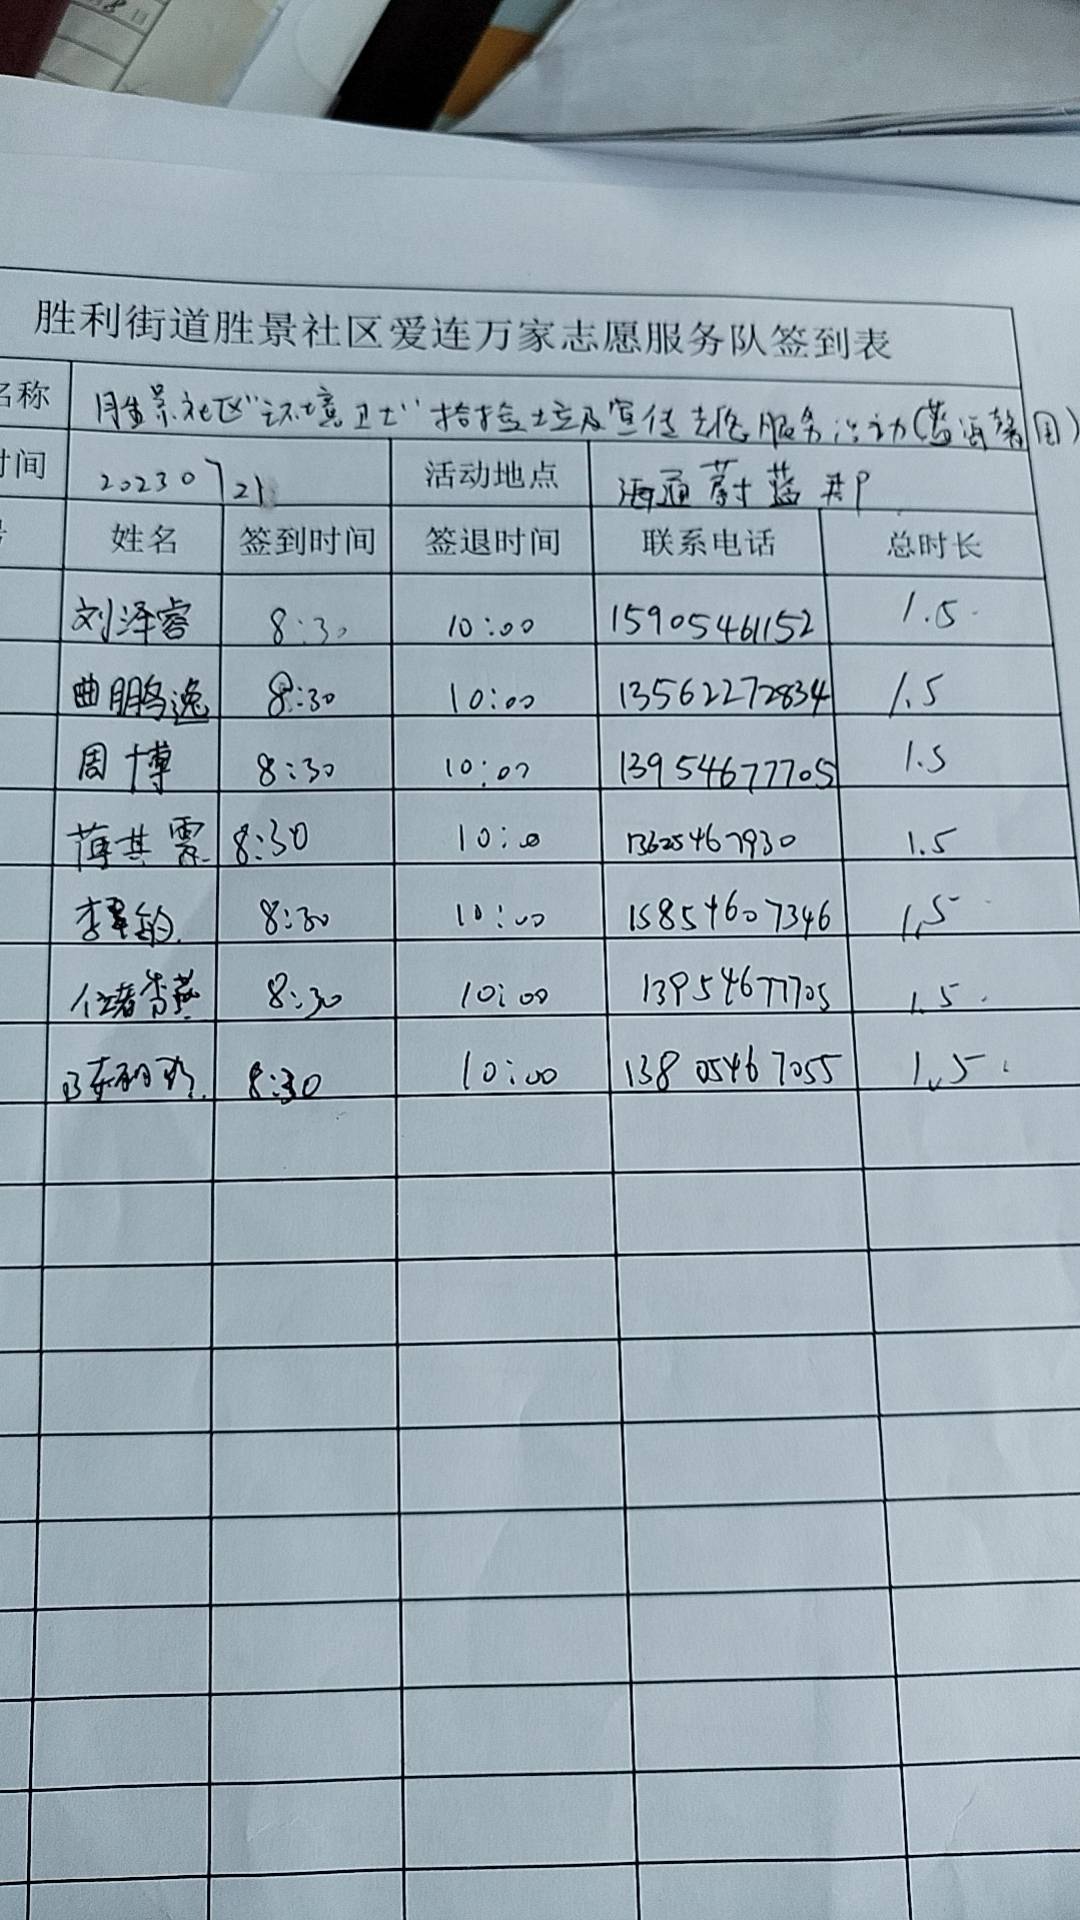 胜利街道胜景社区爱连万家志愿服务队签到表
名称 胜景社区"环境卫士"捡捡垃圾及宣传志愿服务活动
时间 20230721 活动地点 海通蔚蓝
姓名 签到时间 签退时间 联系电话 总时长
刘泽睿 8:30 10:00 15905461152 1.5
曲鹏逸 8:30 10:00 13562272834 1.5
周博 8:30 10:00 13954677705 1.5
薄其霖 8:30 10:00 13625467930 1.5
李 8:30 10:00 15854607346 1.5
香燕 8:30 10:00 13954677705 1.5
8:30 10:00 13805467055 1.5